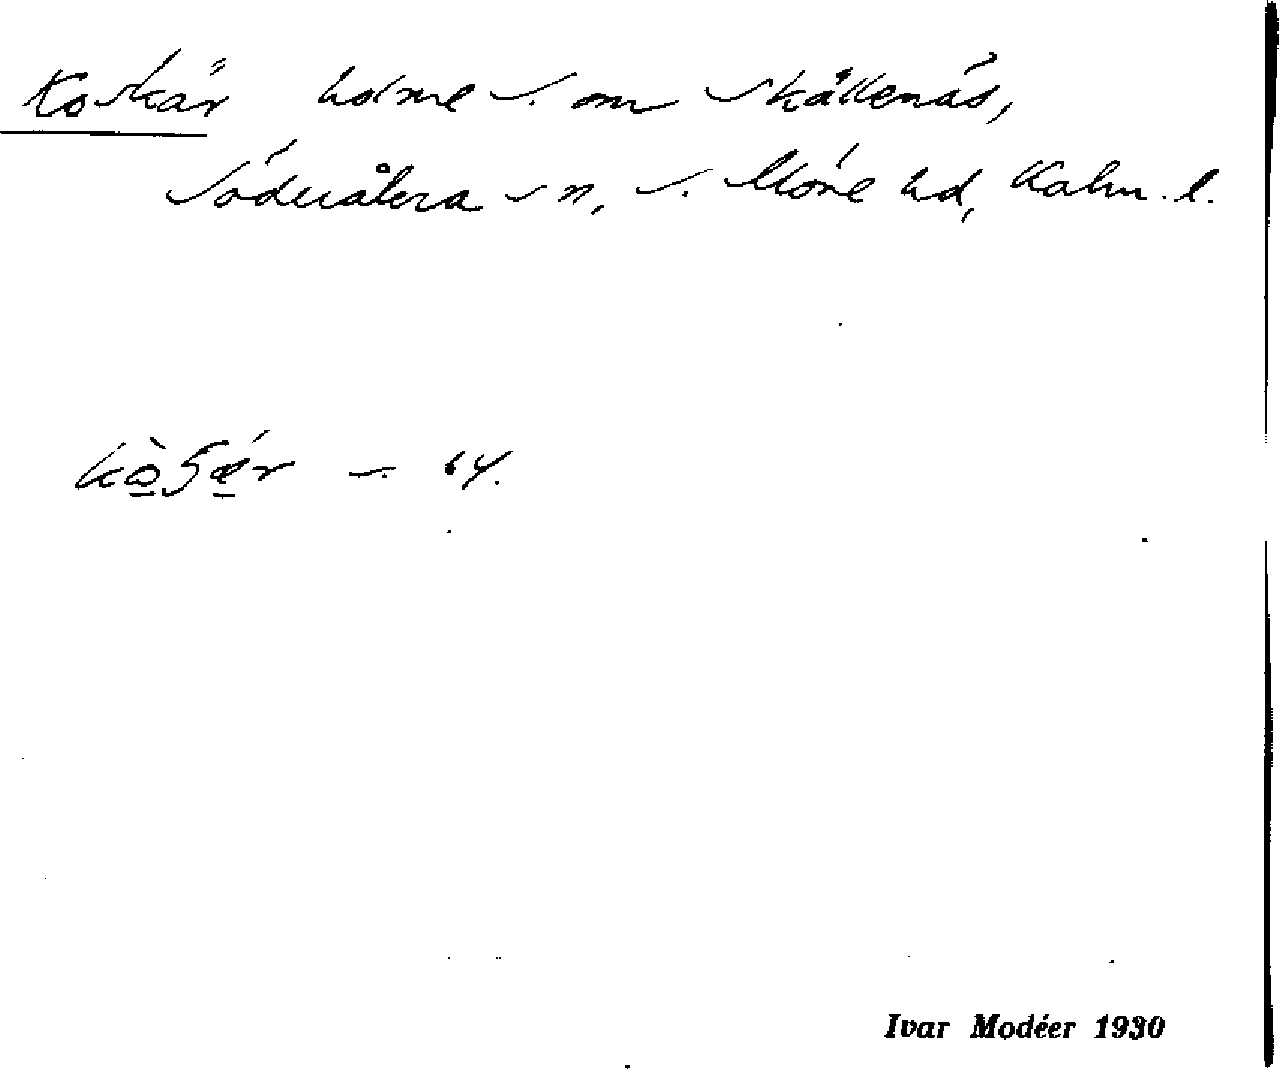 Koskär holme s. om Skällenäs,
Söderåkra sn, s. Möre hd, Kalm. l.
s. 64.
Ivar Modéer 1930